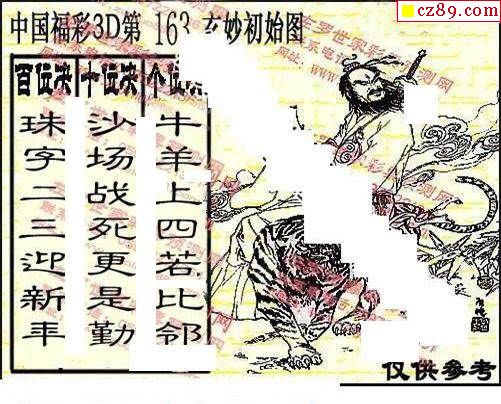 cz89.com
中国福彩3D第 163 玄妙初始图
百位决 十位决 个位
珠字二三迎新年
沙场战死更是勤
牛羊上四若比邻
仅供参考